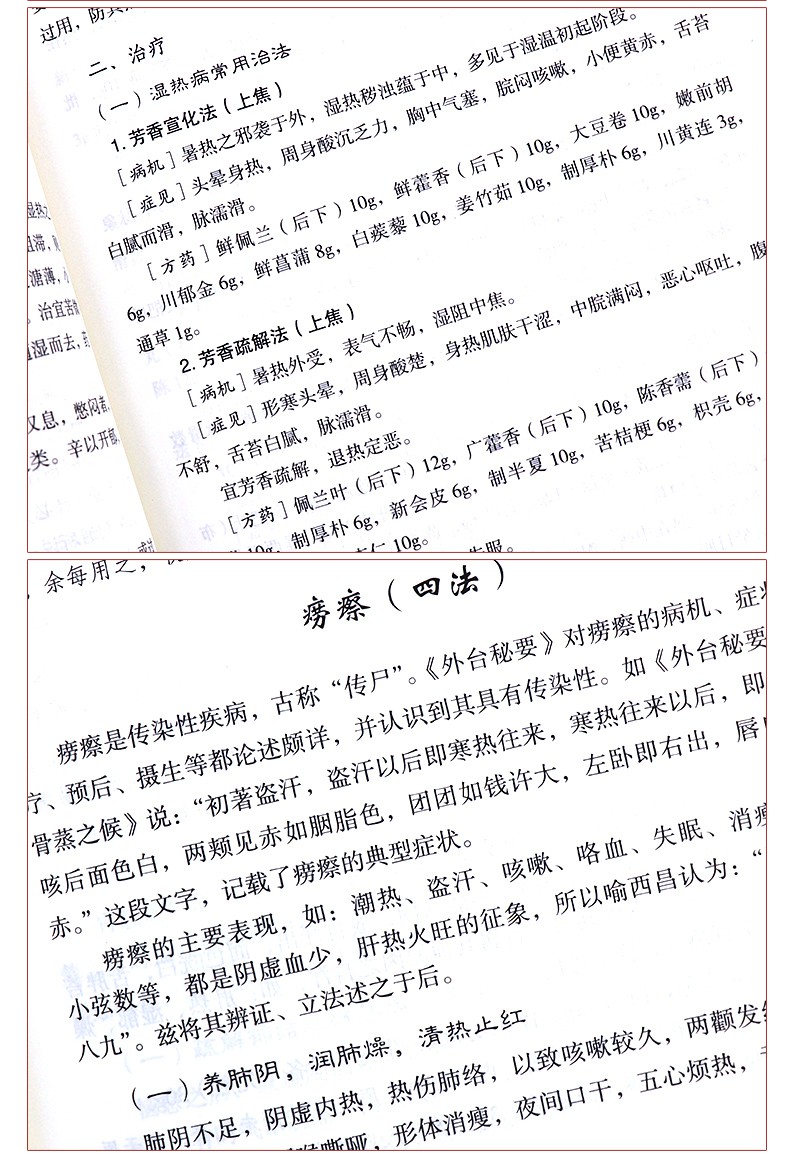 过用，防其
二、治疗
（一）湿热病常用治法
1. 芳香宣化法（上焦）
［病机］暑热之邪袭于外，湿热秽浊蕴于中，多见于湿温初起阶段。
［症见］头晕身热，周身酸沉乏力，胸中气塞，脘闷咳嗽，小便黄赤，舌苔
白腻而滑，脉濡滑。
［方药］鲜佩兰（后下）10g，鲜藿香（后下）10g，大豆卷 10g，嫩前胡
6g，川郁金 6g，鲜菖蒲 8g，白蒺藜 10g，姜竹茹 10g，制厚朴 6g，川黄连 3g，
通草 1g。
2. 芳香疏解法（上焦）
［病机］暑热外受，表气不畅，湿阻中焦。
［症见］形寒头晕，周身酸楚，身热肌肤干涩，中脘满闷，恶心呕吐，腹
不舒，舌苔白腻，脉濡滑。
宜芳香疏解，退热定恶。
［方药］佩兰叶（后下）12g，广藿香（后下）10g，陈香薷（后下）
10g，制厚朴 6g，新会皮 6g，制半夏 10g，苦桔梗 6g，枳壳 6g，
仁 10g。
服。
阻滞，
溏薄，
。治宜苦
湿而去，
又息，憋闷
类。辛以开
余每用之，
痨瘵（四法）
痨瘵是传染性疾病，古称“传尸”。《外台秘要》对痨瘵的病机、症状
疗、预后、摄生等都论述颇详，并认识到其具有传染性。如《外台秘要
骨蒸之候》说：“初著盗汗，盗汗以后即寒热往来，寒热往来以后，即
咳后面色白，两颊见赤如胭脂色，团团如钱许大，左卧即右出，唇
赤。”这段文字，记载了痨瘵的典型症状。
痨瘵的主要表现，如：潮热、盗汗、咳嗽、咯血、失眠、消瘦
小弦数等，都是阴虚血少，肝热火旺的征象，所以喻西昌认为：“
八九”。兹将其辨证、立法述之于后。
（一）养肺阴，润肺燥，清热止红
肺阴不足，阴虚内热，热伤肺络，以致咳嗽较久，两颧发红
嘶哑，形体消瘦，夜间口干，五心烦热，